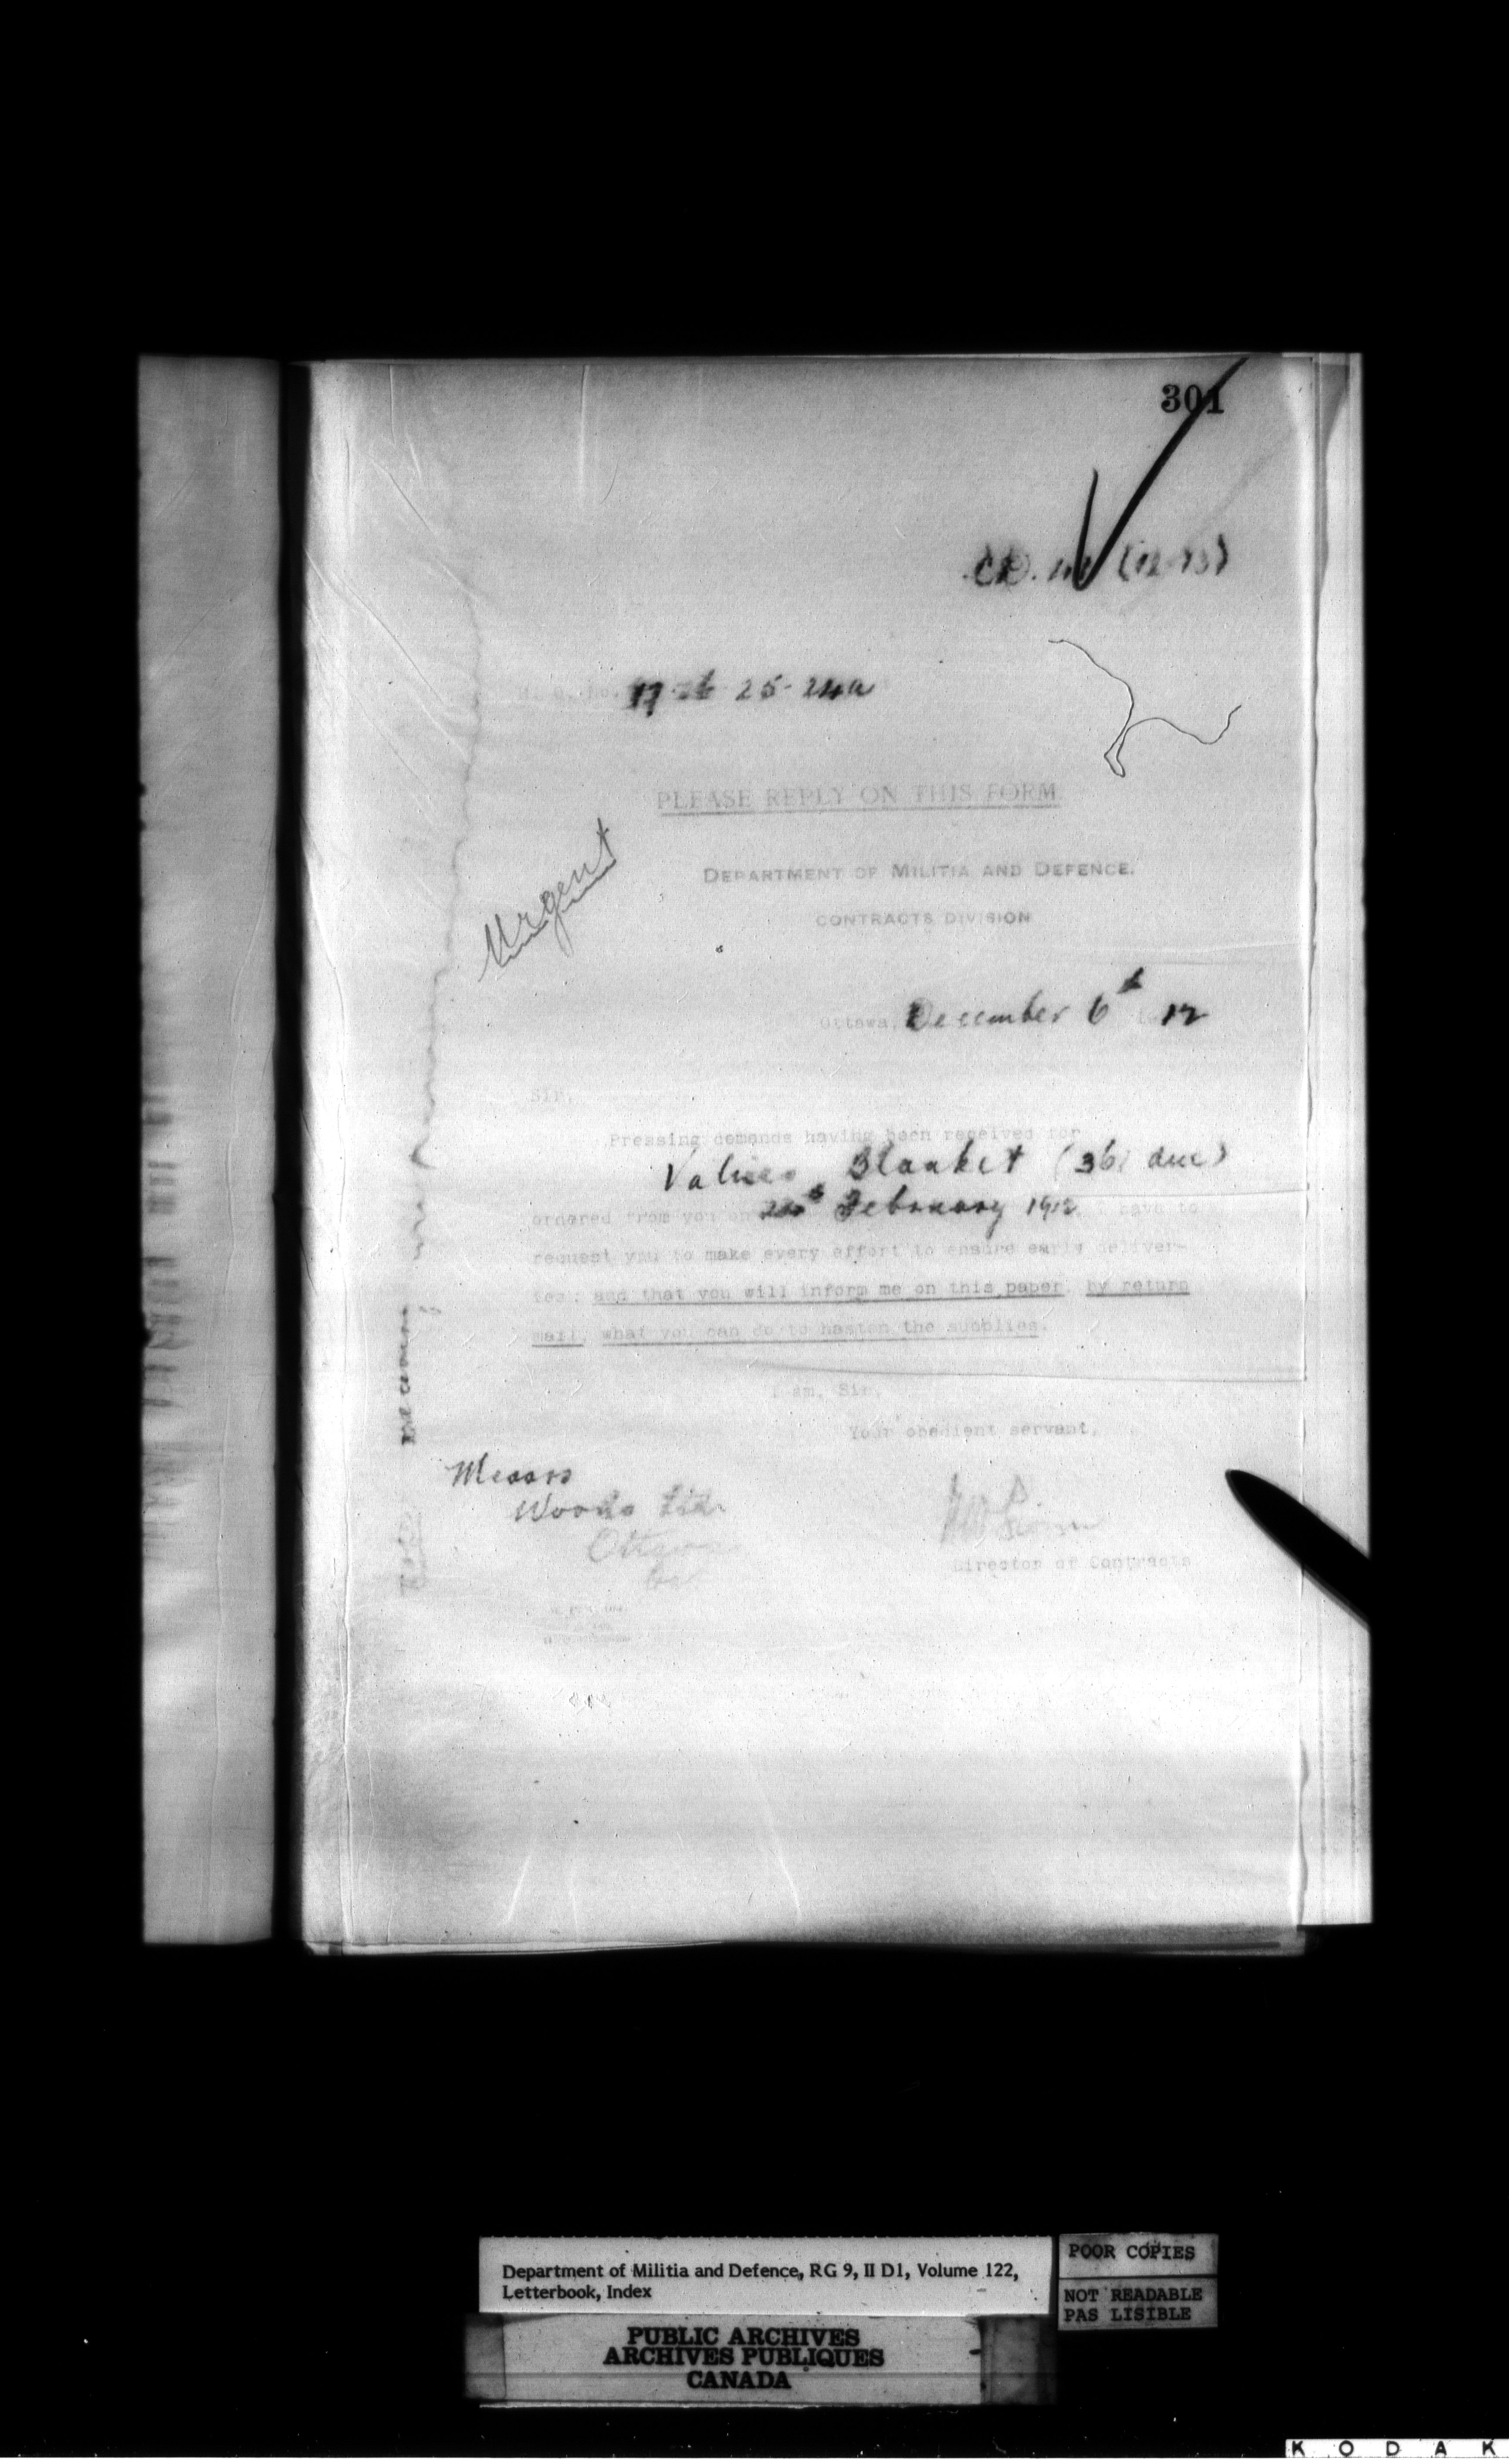 301
C.D. (12-13)
H. Q. No. 17- 25-24a
PLEASE REPLY ON THIS FORM
Urgent
DEPARTMENT OF MILITIA AND DEFENCE.
CONTRACTS DIVISION
Ottawa, December 6th 12
SIR,
Pressing demands having been received for
Valises, Blanket (361 due)
ordered from you on February 1912, I have to
request you to make every effort to ensure early deliver-
ies: and that you will inform me on this paper, by return
mail, what you can do to hasten the supplies.
I am, Sir,
Your obedient servant,
Messrs
Woods Ltd.
Ottawa
Director of Contracts
Department of Militia and Defence, RG 9, II D1, Volume 122,
Letterbook, Index
POOR COPIES
NOT READABLE
PAS LISIBLE
PUBLIC ARCHIVES
ARCHIVES PUBLIQUES
CANADA
KODAK